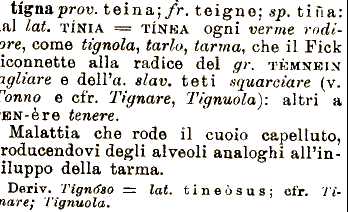 tígna prov. teina; fr. teigne; sp. tiña:
al lat. TÍNIA = TÍNEA ogni verme rodi-
ore, come tignola, tarlo, tarma, che il Fick
iconnette alla radice del gr. TÈMNEIN
agliare e dell'a. slav. teti squarciare (v.
Tonno e cfr. Tignare, Tignuola): altri a
EN-ère tenere.
Malattia che rode il cuoio capelluto,
roducendovi degli alveoli analoghi all'in-
iluppo della tarma.
Deriv. Tignóso = lat. tineòsus; cfr. Ti-
nare; Tignuola.